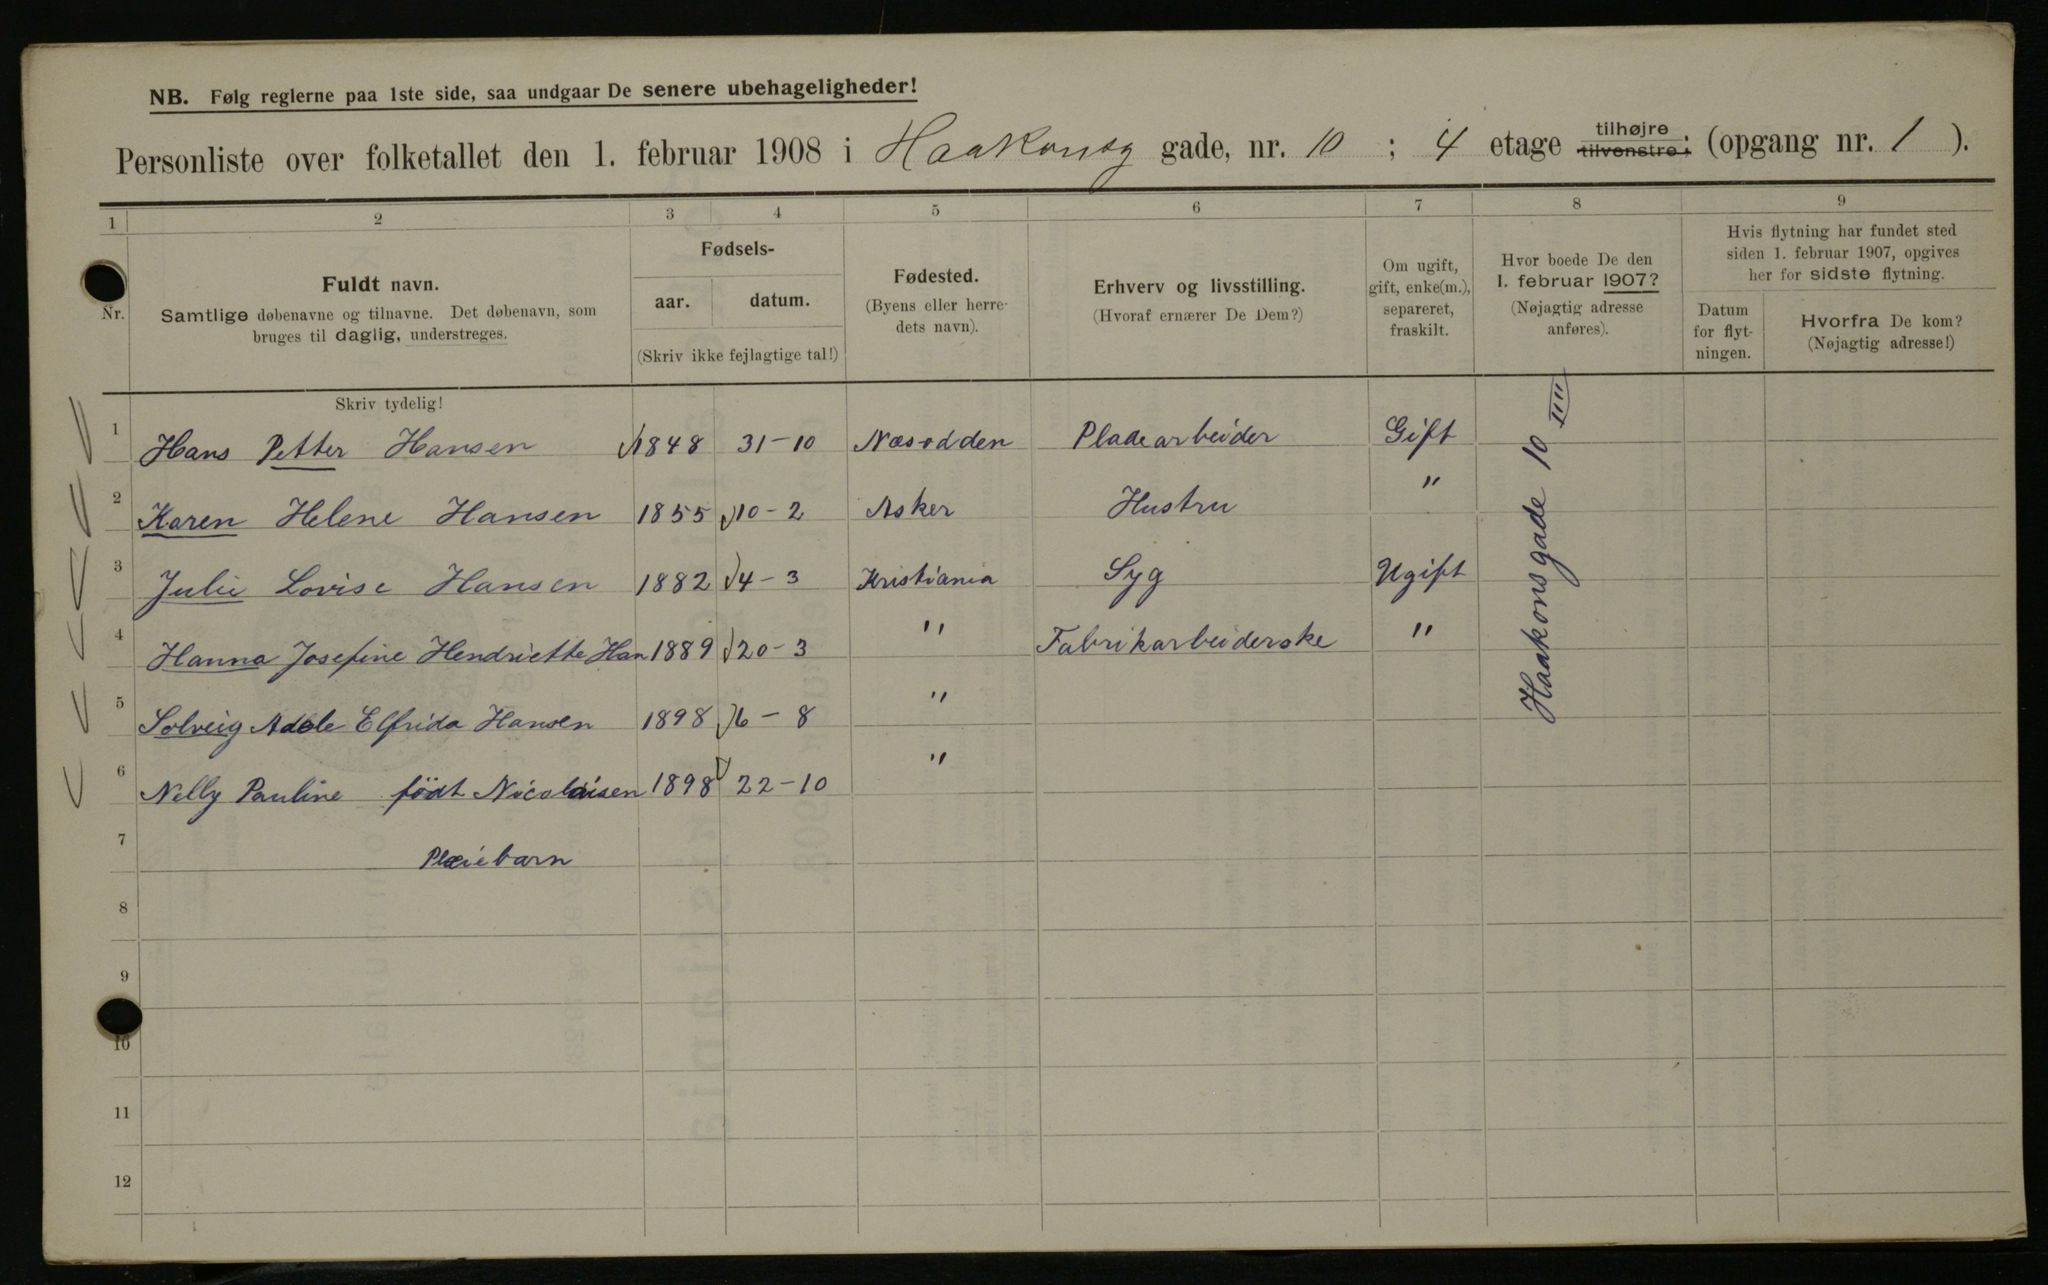 NB. Følg reglerne paa 1ste side, saa undgaar De senere ubehageligheder!
Personliste over folketallet den 1. februar 1908 i Haakonsg gade, nr. 10 ; 4 etage tilhøjre tilvenstre; (opgang nr. 1 ).
1 2 3 4 5 6 7 8 9
Nr.
Fuldt navn.
Samtlige døbenavne og tilnavne. Det døbenavn, som
bruges til daglig, understreges.
Fødsels-
aar. datum.
(Skriv ikke fejlagtige tal!)
Fødested.
(Byens eller herre-
dets navn).
Erhverv og livsstilling.
(Hvoraf ernærer De Dem?)
Om ugift,
gift, enke(m.),
separeret,
fraskilt.
Hvor boede De den
1. februar 1907?
(Nøjagtig adresse
anføres).
Hvis flytning har fundet sted
siden 1. februar 1907, opgives
her for sidste flytning.
Datum
for flyt-
ningen.
Hvorfra De kom?
(Nøjagtig adresse!)
Skriv tydelig!
1 Hans Petter Hansen 1848 31-10 Næsodden Pladearbeider Gift
2 Karen Helene Hansen 1855 10-2 Asker Hustru "
3 Julie Lovise Hansen 1882 4-3 Kristiania Syg Ugift
4 Hanna Josefine Hendriette Han 1889 20-3 " Fabrikarbeiderske "
5 Solveig Adele Elfrida Hansen 1898 6-8 "
6 Nelly Pauline født Nicolaisen 1898 22-10 "
7 Pleiebarn
8
9
10
11
12
Haakonsgade 10 IIII